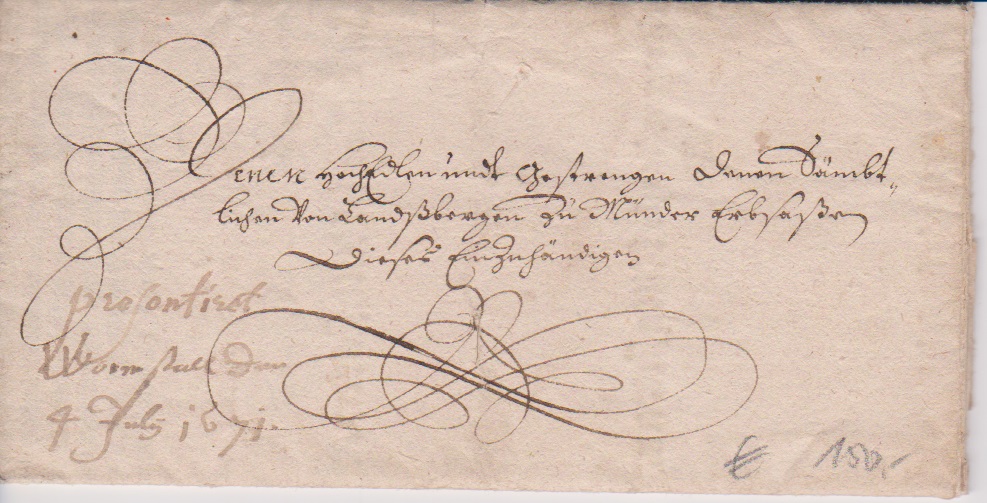 Denen HochEdlen undt Gestrengen Denen Sämbt-
lichen Von Landßbergen Zu Münder Erbsaßen
Dieses Einzuhändigen
præsentiret
Wormstall den
4 July 1671.
€ 150,-